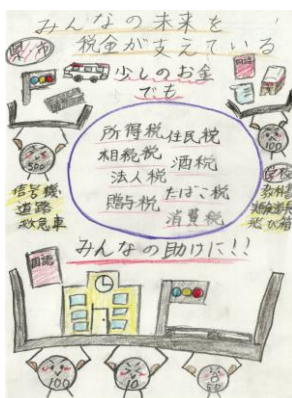 みんなの未来を
税金が支えている
県・市
少しのお金
でも
国語
所得税 住民税
相続税 酒税
法人税 たばこ税
贈与税 消費税
500
信号機
道路
救急車
学校
教科書
実験道具
跳び箱
みんなの助けに!!
国語
100
10
50